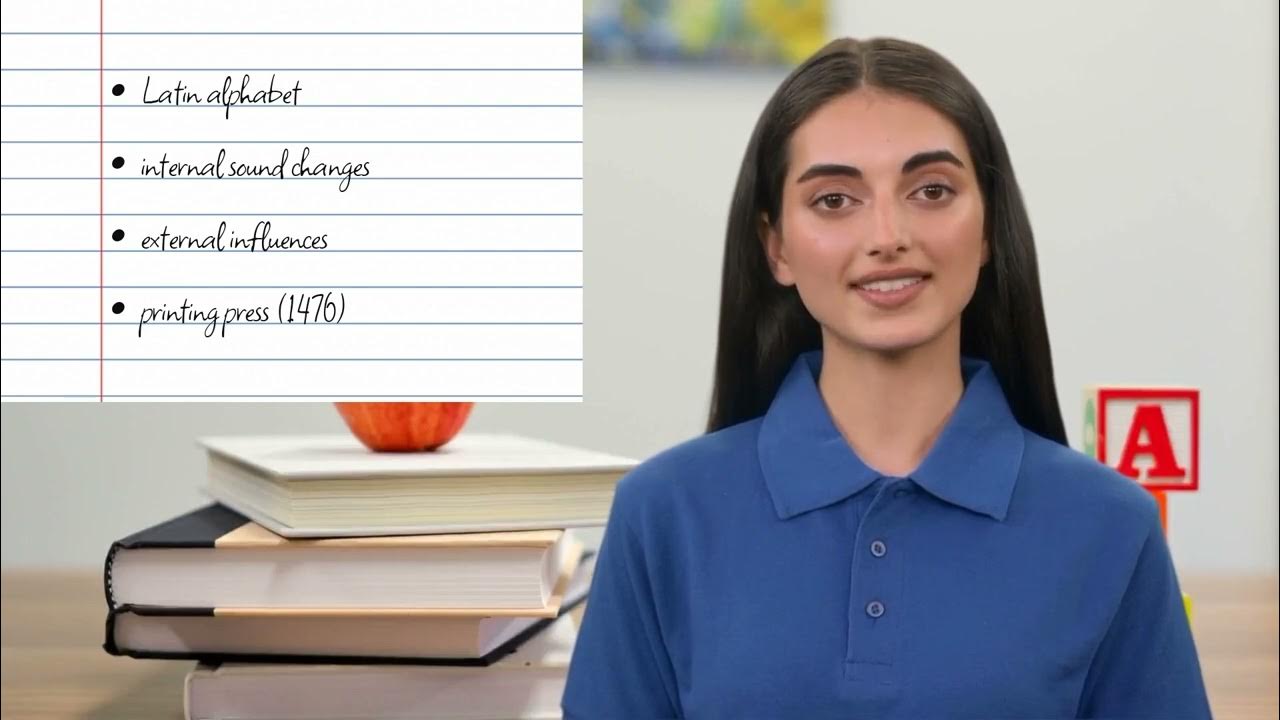 • Latin alphabet
• internal sound changes
• external influences
• printing press (1476)
A